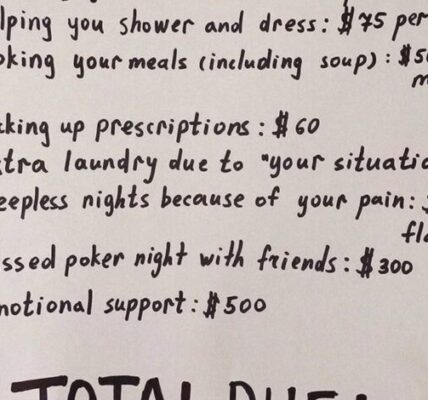 lping you shower and dress: $75 per
oking your meals (including soup): $5
m
cking up prescriptions: $60
tra laundry due to "your situatio
eepless nights because of your pain:
fl
ssed poker night with friends: $300
motional support: $500
TOTAL DUE: